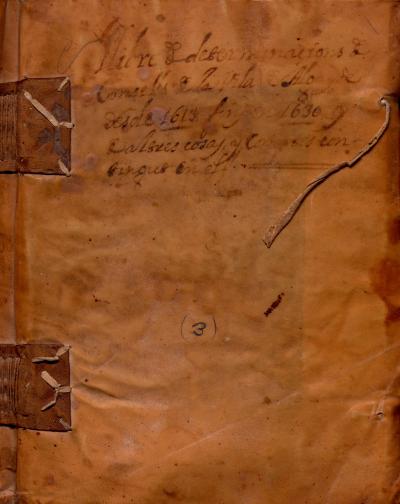 Llibre de determinacions de
Consell de la Vila de
desde 1613 fins 1630 y
de altres cosas y Comptes con
tingut en ell
(3)